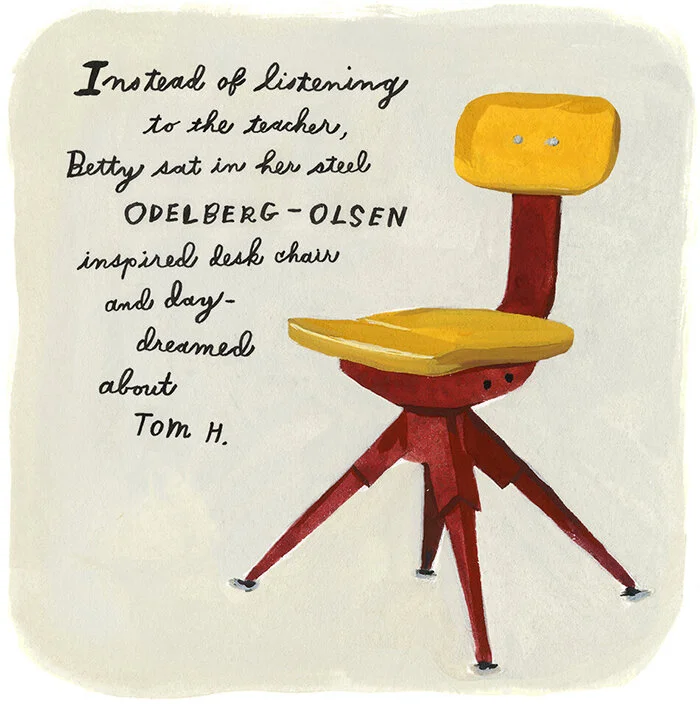 Instead of listening
to the teacher,
Betty sat in her steel
ODELBERG-OLSEN
inspired desk chair
and day-
dreamed
about
TOM H.